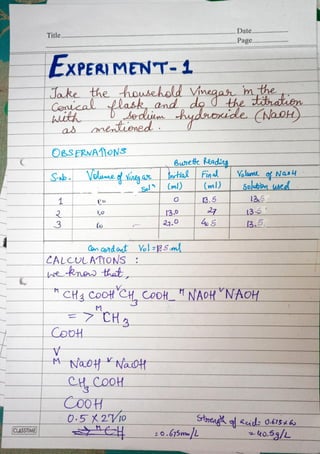 Title
Date
Page
EXPERIMENT-1
Take the household Vinegar in the
Conical flask and do the titration
with sodium hydroxide (NaOH)
as mentioned.
OBSERVATIONS
Burette Reading
S.no. Volume of Vinegar Initial Final Volume of NaOH
soln (ml) (ml) solution used
1 10 0 13.5 13.5
2 10 13.0 27 13.5
3 10 27.0 40.5 13.5
Concordant Vol = 13.5 ml
CALCULATIONS :
We know that,
M CH3 COOH V CH3 COOH = M NAOH V NAOH
=> M CH3
COOH
V
M NaOH V NaOH
CH3 COOH
COOH
0.5 X 27/10 Strength of acid: 0.675x60
=> M CH = 0.675m/L = 40.5g/L
CLASSTIME